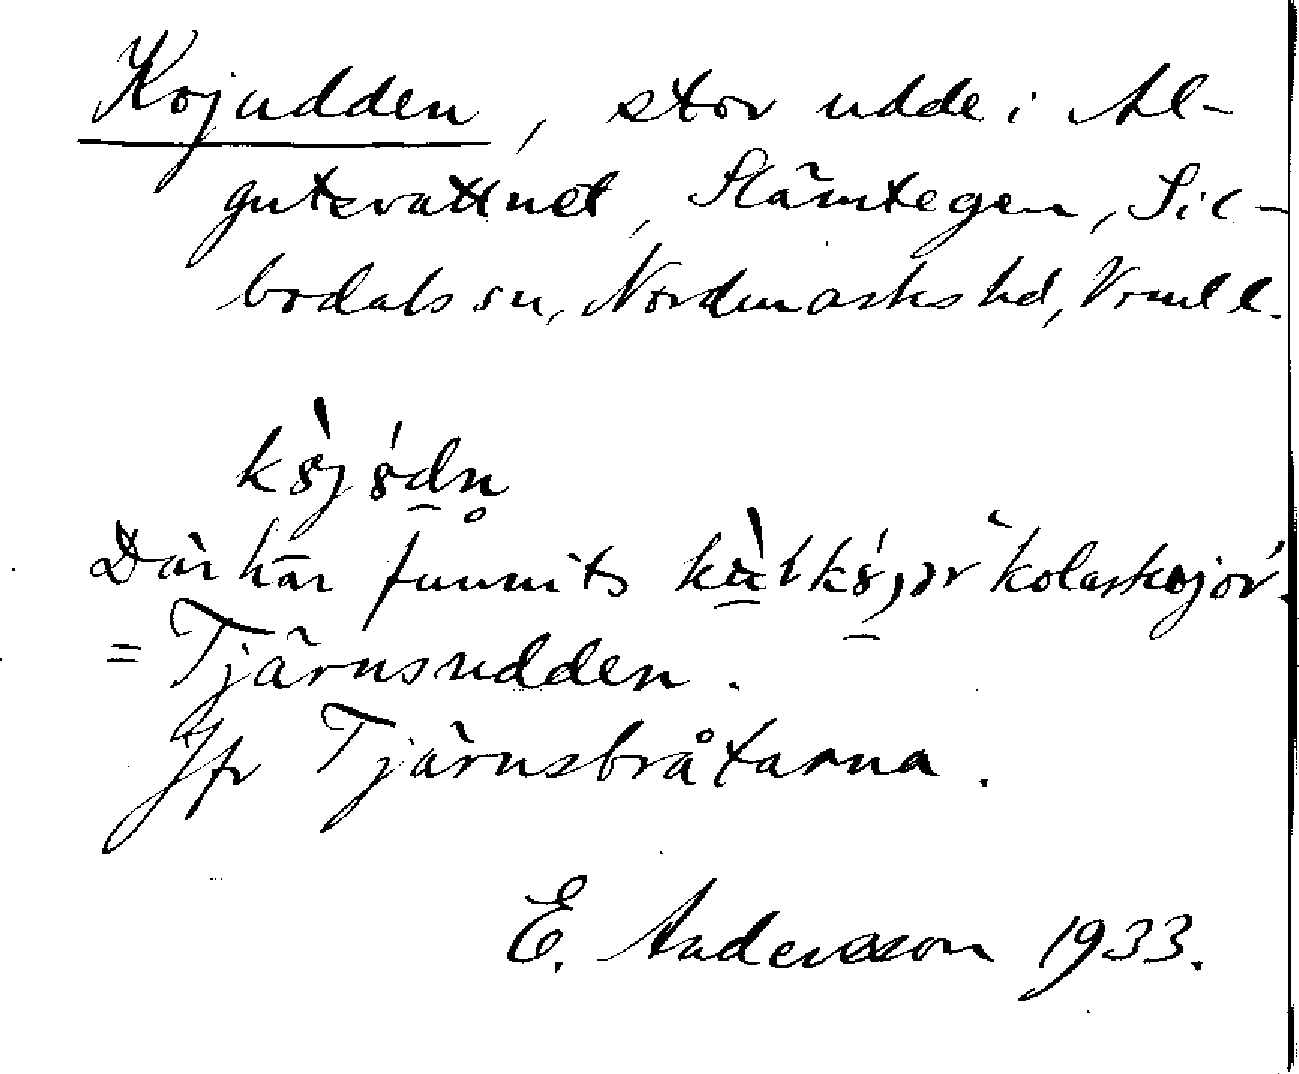 Kojudden, stor udde i Al-
gutsvattnet, Slämtegen, Sil-
bodals sn, Nordmarks hd, Vrml l.
Där har funnits "kolarkojor".
= Tjärnsudden.
Jfr Tjärnsbråtarna.
E. Andersson 1933.